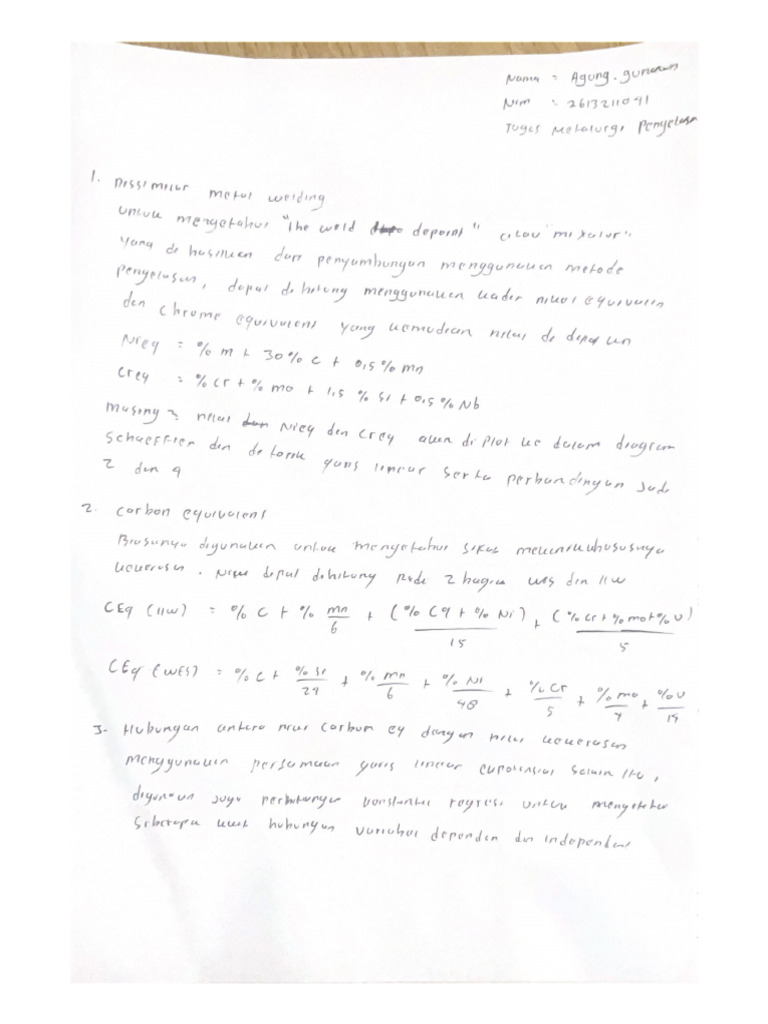 Nama : Agung. gunawan
Nim : 2613211041
Tugas Metalurgi Penyelasan
1. Dissimilar metal welding
untuk mengetahui "The weld deposit" atau "mixatur"
yang di hasilkan dari penyambungan menggunakan metode
pengelasan, dapat di hitung menggunakan kadar nikel equivalen
dan Chrome equivalent yang kemudian nilai di dapat kan
Nieq = % ni + 30 % C + 0,5 % mn
Creq = % Cr + % mo + 1,5 % si + 0,5 % Nb
masing 2 nilai Nieq dan Creq akan di plot ke dalam diagram
Schaeffler dan di tarik garis linear serta perbandingan
2. Carbon equivalent
Biasanya digunakan untuk mengetahui sifat mekanik khususnya
kekerasan. Nilai dapat dihitung pada 2 bagian WES dan IIW
CEq (IIW) = % C + % mn/6 + (% Cq + % Ni)/15 + (% Cr + % mo + % V)/5
CEq (WES) = % C + % si/24 + % mn/6 + % Ni/40 + % Cr/5 + % mo/4 + % V/14
3- Hubungan antara nilai Carbon eq dengan nilai kekerasan
menggunakan persamaan garis linear eksponensial selain itu,
digunakan juga perhitungan konstanta regresi untuk mengetahui
seberapa kuat hubungan variabel dependen dan independent